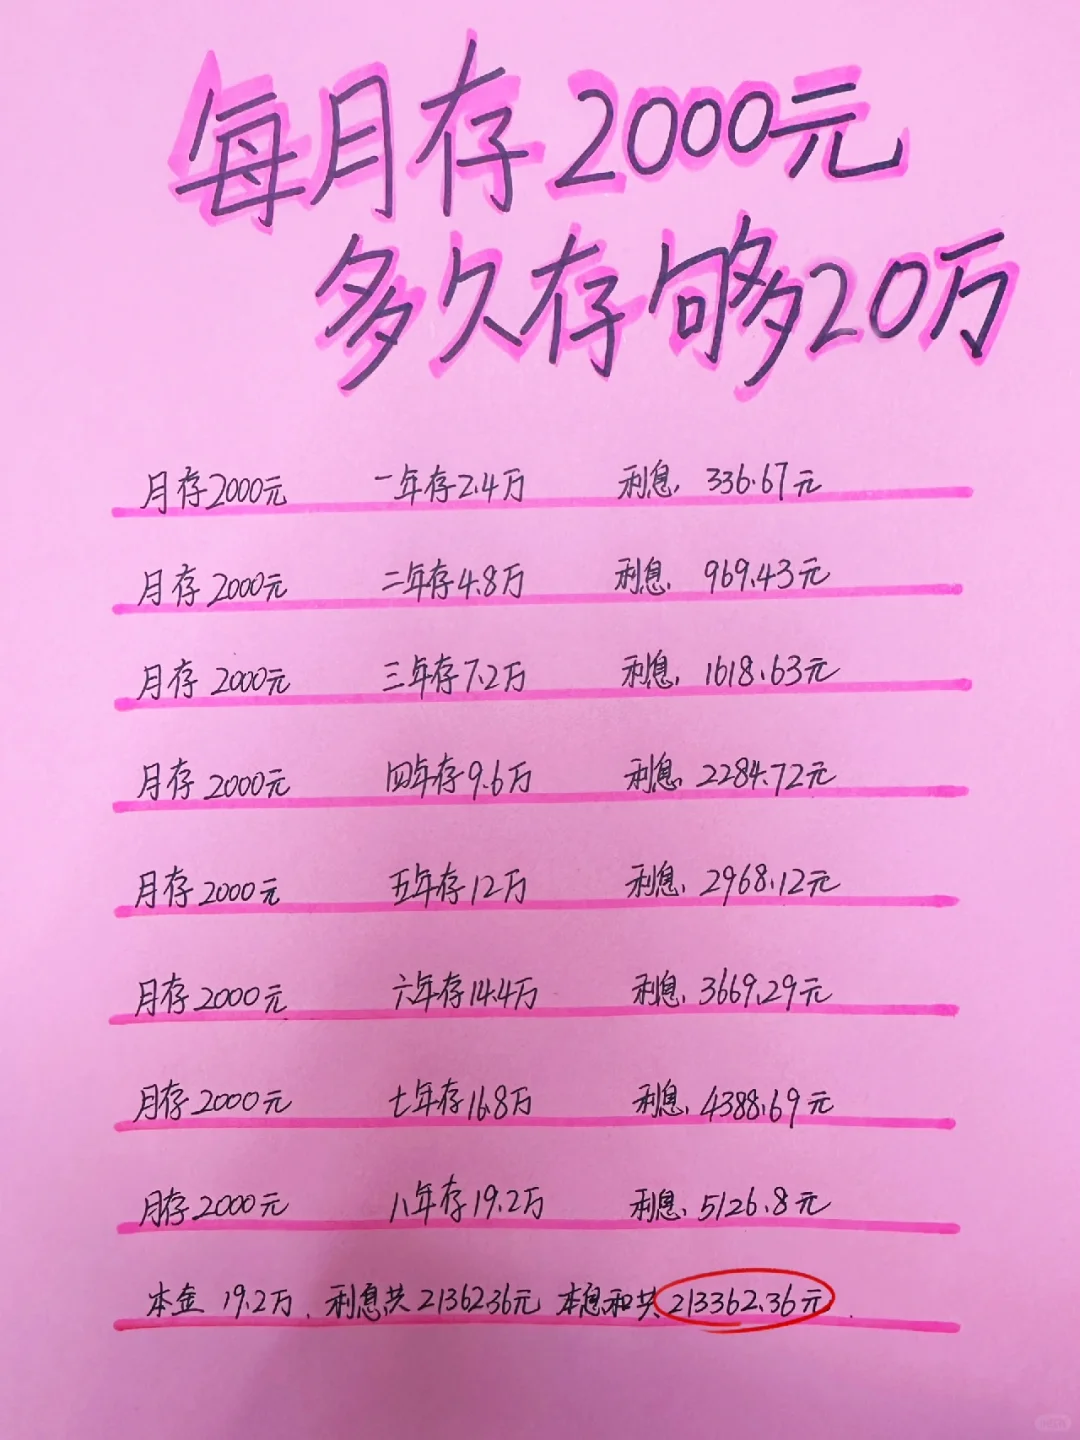 每月存2000元
多久存够20万
月存2000元 一年存2.4万 利息.336.67元
月存2000元 二年存4.8万 利息.969.43元
月存2000元 三年存7.2万 利息.1618.63元
月存2000元 四年存9.6万 利息.2284.72元
月存2000元 五年存12万 利息.2968.12元
月存2000元 六年存14.4万 利息.3669.29元
月存2000元 七年存16.8万 利息.4388.69元
月存2000元 八年存19.2万 利息.5126.8元
本金19.2万.利息共21362.36元 本息和共213362.36元.